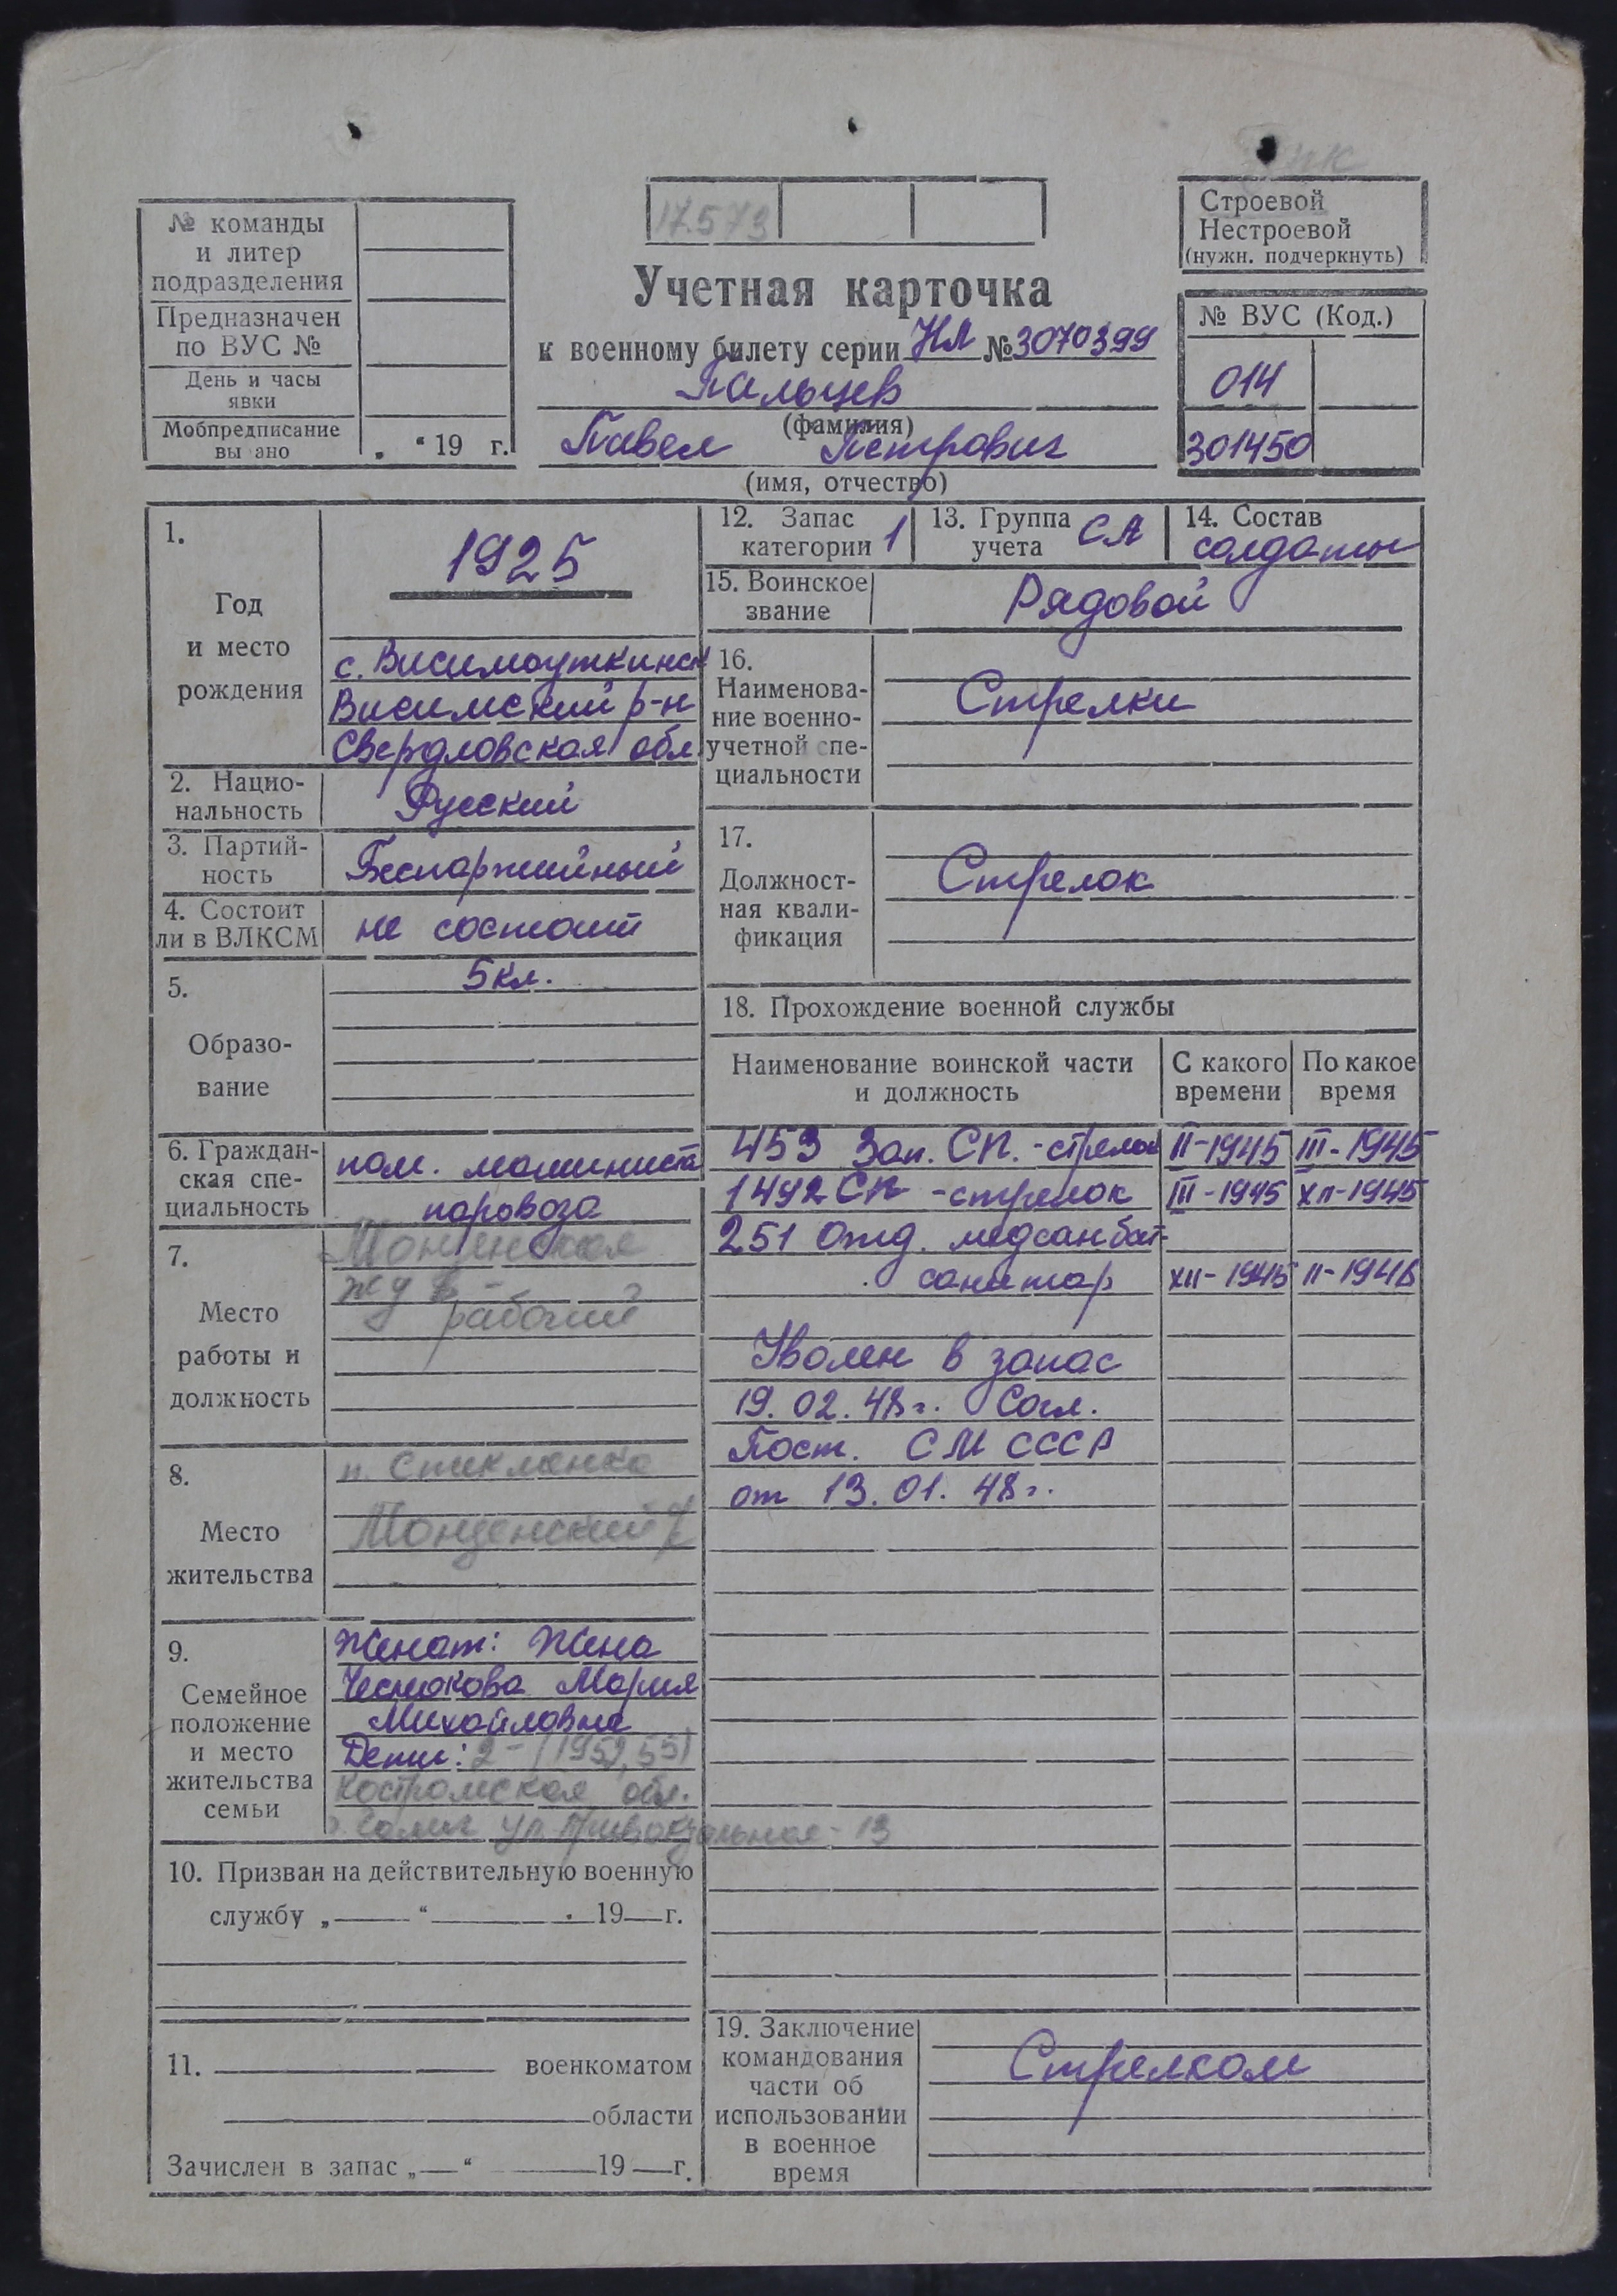 17573
Строевой
Нестроевой
(нужн. подчеркнуть)
№ команды
и литер
подразделения
Предназначен
по ВУС №
День и часы
явки
Мобпредписание
вы ано
" 19 г.
Учетная карточка
к военному билету серии НЛ № 3070399
Пальцев
(фамилия)
Павел Петрович
(имя, отчество)
№ ВУС (Код.)
014
301450
1.
Год
и место
рождения
1925
с. Висимоуткинск
Висимский р-н
Свердловская обл
2. Нацио-
нальность
Русский
3. Партий-
ность
Беспартийный
4. Состоит
ли в ВЛКСМ
не состоит
5.
Образо-
вание
5 кл.
6. Граждан-
ская спе-
циальность
пом. машиниста
паровоза
7.
Место
работы и
должность
рабочий
8.
Место
жительства
Монзенский
9.
Семейное
положение
и место
жительства
семьи
Женат: Жена
Чеснокова Мария
Михайловна
Дети: 2 - (1952, 55)
Костромская обл.
ул Привокзальная - 13
10. Призван на действительную военную
службу „ “ 19 г.
11. военкоматом
области
Зачислен в запас „ “ 19 г.
12. Запас
категории 1
13. Группа
учета СА
14. Состав
солдаты
15. Воинское
звание
Рядовой
16.
Наименова-
ние военно-
учетной спе-
циальности
Стрелки
17.
Должност-
ная квали-
фикация
Стрелок
18. Прохождение военной службы
Наименование воинской части
и должность
С какого
времени
По какое
время
453 Зап. СП. - стрелок II-1945 III-1945
1492 СП - стрелок III-1945 XII-1945
251 Отд. медсанбат-
санитар XII-1945 II-1948
Уволен в запас
19.02.48г. Согл.
Пост. СМ СССР
от 13.01.48г.
19. Заключение
командования
части об
использовании
в военное
время
Стрелком